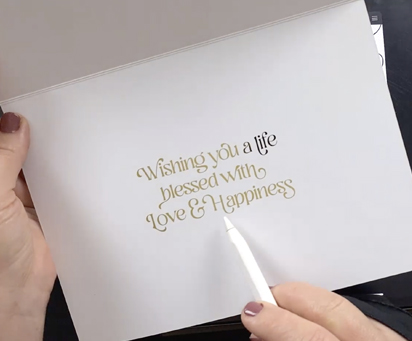 Wishing you a life
blessed with
Love & Happiness